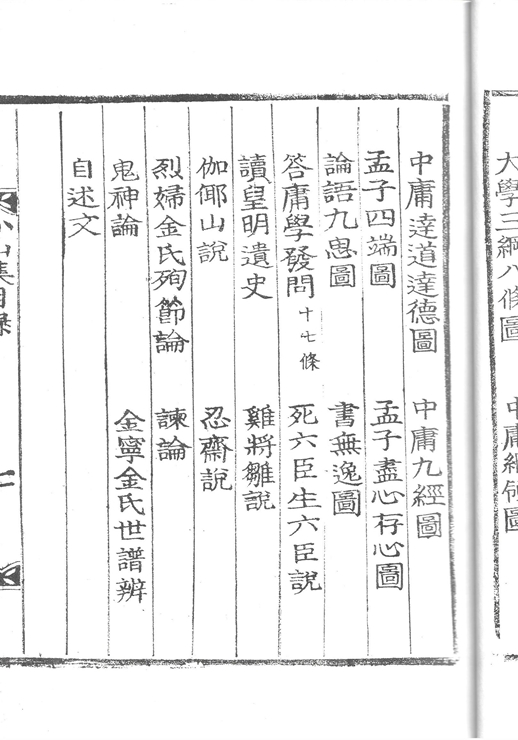 大學三綱八條圖 中庸
中庸達道達德圖 中庸九經圖
孟子四端圖 孟子盡心存心圖
論語九思圖 書無逸圖
答庸學發問十七條 死六臣生六臣說
讀皇明遺史 雞將雛說
伽倻山說 忍齋說
烈婦金氏殉節論 諫論
鬼神論 金寧金氏世譜辨
自述文
小山集目錄